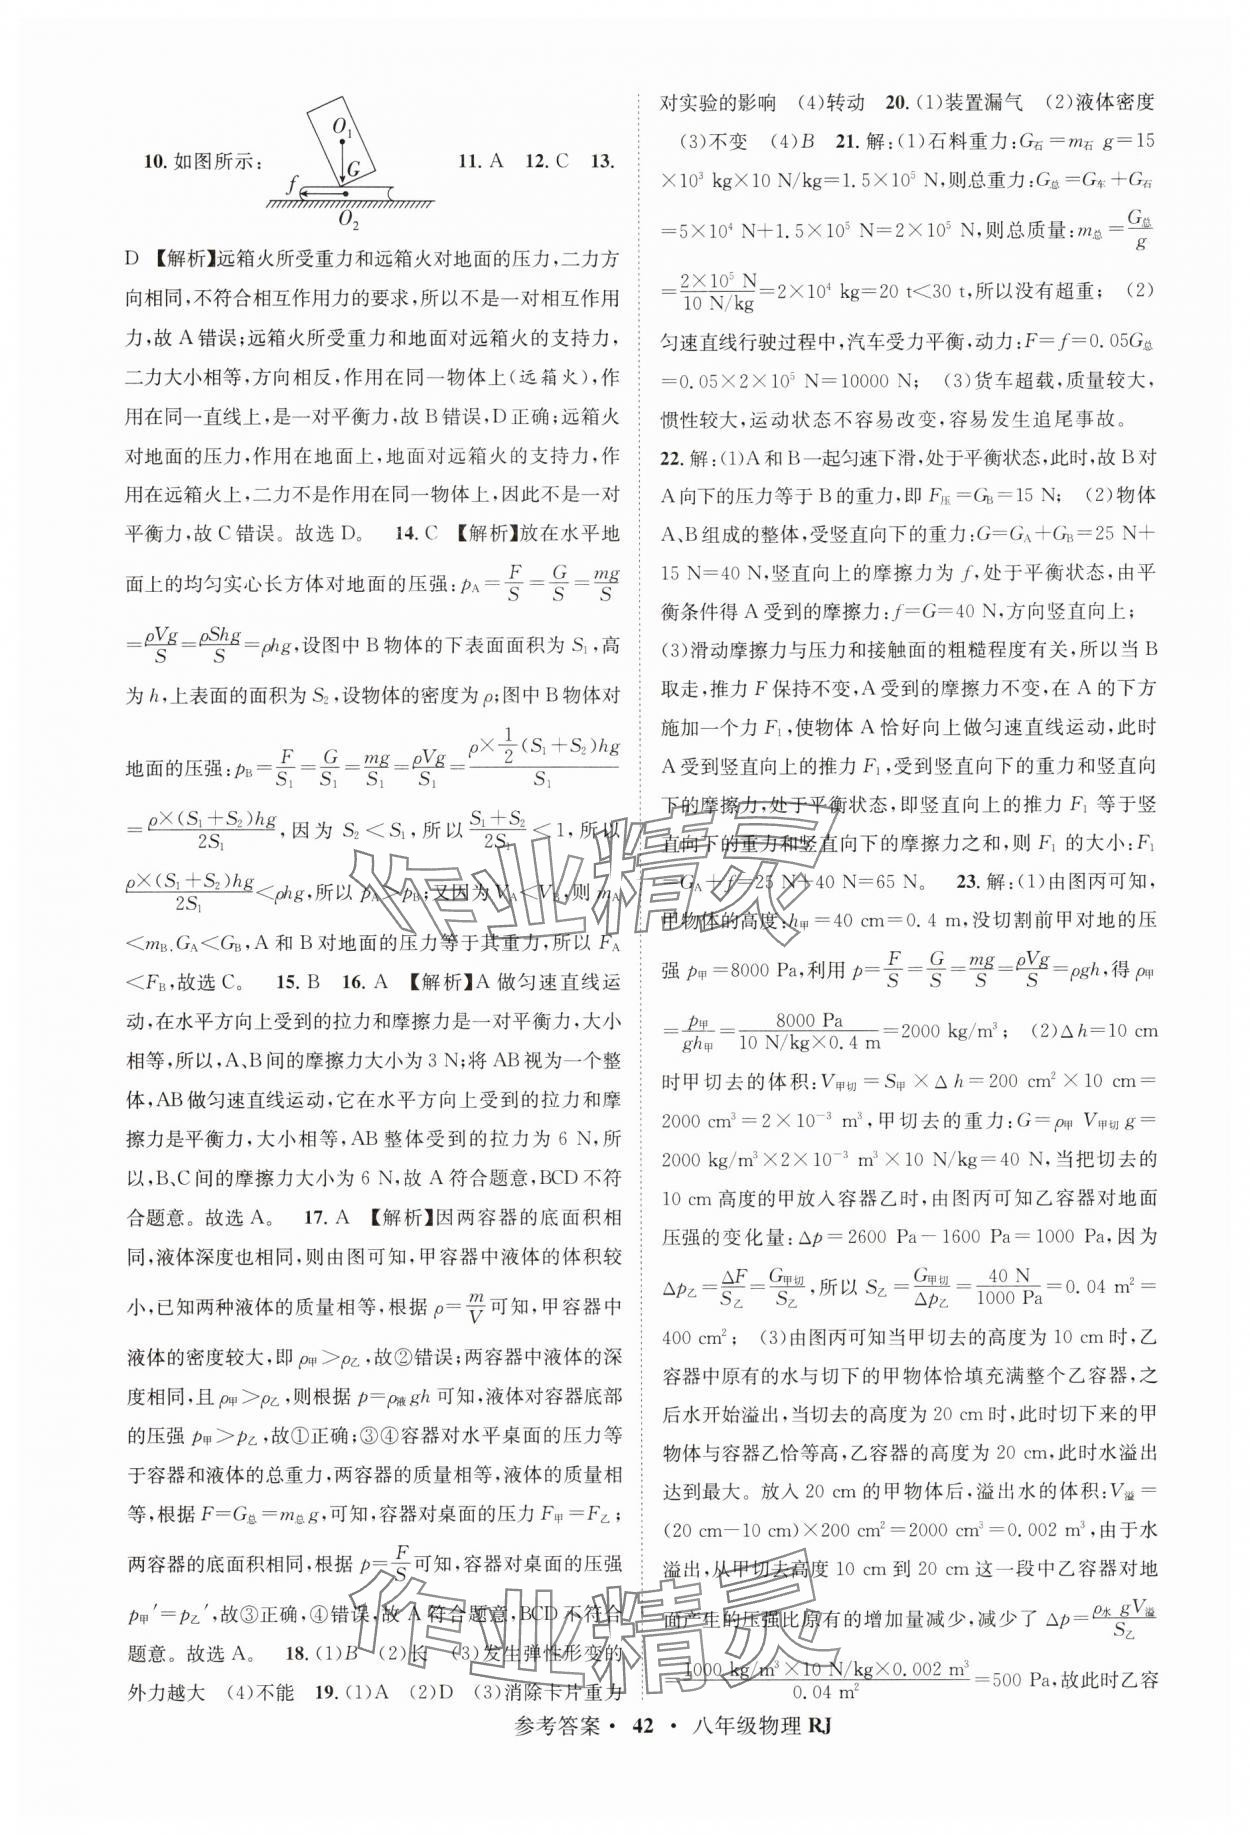 10.如图所示： O₁ G f O₂ 11. A 12. C 13.
D 【解析】远箱火所受重力和远箱火对地面的压力,二力方
向相同,不符合相互作用力的要求,所以不是一对相互作用
力,故 A 错误;远箱火所受重力和地面对远箱火的支持力,
二力大小相等,方向相反,作用在同一物体上(远箱火),作
用在同一直线上,是一对平衡力,故 B 错误,D 正确;远箱火
对地面的压力,作用在地面上,地面对远箱火的支持力,作
用在远箱火上,二力不是作用在同一物体上,因此不是一对
平衡力,故 C 错误。故选 D。 14. C 【解析】放在水平地
面上的均匀实心长方体对地面的压强:p_A=F/S=G/S=mg/S
=ρVg/S=ρShg/S=ρhg,设图中 B 物体的下表面面积为 S₁,高
为 h,上表面的面积为 S₂,设物体的密度为 ρ;图中 B 物体对
地面的压强:p_B=F/S₁=G/S₁=mg/S₁=ρVg/S₁=ρ×1/2(S₁+S₂)hg/S₁
=ρ×(S₁+S₂)hg/2S₁,因为 S₂<S₁,所以 S₁+S₂/2S₁<1,所以
ρ×(S₁+S₂)hg/2S₁<ρhg,所以 p_A>p_B;又因为 V_A<V_B,则 m_A
<m_B,G_A<G_B,A 和 B 对地面的压力等于其重力,所以 F_A
<F_B,故选 C。 15. B 16. A 【解析】A 做匀速直线运
动,在水平方向上受到的拉力和摩擦力是一对平衡力,大小
相等,所以,A、B 间的摩擦力大小为 3 N;将 AB 视为一个整
体,AB 做匀速直线运动,它在水平方向上受到的拉力和摩
擦力是平衡力,大小相等,AB 整体受到的拉力为 6 N,所
以,B、C 间的摩擦力大小为 6 N,故 A 符合题意,BCD 不符
合题意。故选 A。 17. A 【解析】因两容器的底面积相
同,液体深度也相同,则由图可知,甲容器中液体的体积较
小,已知两种液体的质量相等,根据 ρ=m/V可知,甲容器中
液体的密度较大,即 ρ甲>ρ乙,故②错误;两容器中液体的深
度相同,且 ρ甲>ρ乙,则根据 p=ρ液gh 可知,液体对容器底部
的压强 p甲>p乙,故①正确;③④容器对水平桌面的压力等
于容器和液体的总重力,两容器的质量相等,液体的质量相
等,根据 F=G总=m总g,可知,容器对桌面的压力 F甲=F乙;
两容器的底面积相同,根据 p=F/S可知,容器对桌面的压强
p甲′=p乙′,故③正确,④错误,故 A 符合题意,BCD 不符合
题意。故选 A。 18. (1)B (2)长 (3)发生弹性形变的
外力越大 (4)不能 19. (1)A (2)D (3)消除卡片重力
对实验的影响 (4)转动 20. (1)装置漏气 (2)液体密度
(3)不变 (4)B 21. 解:(1)石料重力:G石=m石 g=15
×10³ kg×10 N/kg=1.5×10⁵ N,则总重力:G总=G车+G石
=5×10⁴ N+1.5×10⁵ N=2×10⁵ N,则总质量:m总=G总/g
=2×10⁵ N/10 N/kg=2×10⁴ kg=20 t<30 t,所以没有超重; (2)
匀速直线行驶过程中,汽车受力平衡,动力:F=f=0.05G总
=0.05×2×10⁵ N=10000 N; (3)货车超载,质量较大,
惯性较大,运动状态不容易改变,容易发生追尾事故。
22. 解:(1)A 和 B 一起匀速下滑,处于平衡状态,此时,故 B 对
A 向下的压力等于 B 的重力,即 F压=G_B=15 N; (2)物体
A、B 组成的整体,受竖直向下的重力:G=G_A+G_B=25 N+
15 N=40 N,竖直向上的摩擦力为 f,处于平衡状态,由平
衡条件得 A 受到的摩擦力:f=G=40 N,方向竖直向上;
(3)滑动摩擦力与压力和接触面的粗糙程度有关,所以当 B
取走,推力 F 保持不变,A 受到的摩擦力不变,在 A 的下方
施加一个力 F₁,使物体 A 恰好向上做匀速直线运动,此时
A 受到竖直向上的推力 F₁,受到竖直向下的重力和竖直向
下的摩擦力,处于平衡状态,即竖直向上的推力 F₁ 等于竖
直向下的重力和竖直向下的摩擦力之和,则 F₁ 的大小:F₁
=G_A+f=25 N+40 N=65 N。 23. 解:(1)由图丙可知,
甲物体的高度:h甲=40 cm=0.4 m,没切割前甲对地的压
强 p甲=8000 Pa,利用 p=F/S=G/S=mg/S=ρVg/S=ρgh,得 ρ甲
=p甲/gh甲=8000 Pa/10 N/kg×0.4 m=2000 kg/m³; (2)Δh=10 cm
时甲切去的体积:V甲切=S甲×Δh=200 cm²×10 cm=
2000 cm³=2×10⁻³ m³,甲切去的重力:G=ρ甲 V甲切g=
2000 kg/m³×2×10⁻³ m³×10 N/kg=40 N,当把切去的
10 cm 高度的甲放入容器乙时,由图丙可知乙容器对地面
压强的变化量:Δp=2600 Pa−1600 Pa=1000 Pa,因为
Δp乙=ΔF/S乙=G甲切/S乙,所以 S乙=G甲切/Δp乙=40 N/1000 Pa=0.04 m²=
400 cm²; (3)由图丙可知当甲切去的高度为 10 cm 时,乙
容器中原有的水与切下的甲物体恰填充满整个乙容器,之
后水开始溢出,当切去的高度为 20 cm 时,此时切下来的甲
物体与容器乙恰等高,乙容器的高度为 20 cm,此时水溢出
达到最大。放入 20 cm 的甲物体后,溢出水的体积:V溢=
(20 cm−10 cm)×200 cm²=2000 cm³=0.002 m³,由于水
溢出,从甲切去高度 10 cm 到 20 cm 这一段中乙容器对地
面产生的压强比原有的增加量减少,减少了 Δp=ρ水 gV溢/S乙
=1000 kg/m³×10 N/kg×0.002 m³/0.04 m²=500 Pa,故此时乙容
参考答案·42·八年级物理 RJ
作业精灵
作业精灵